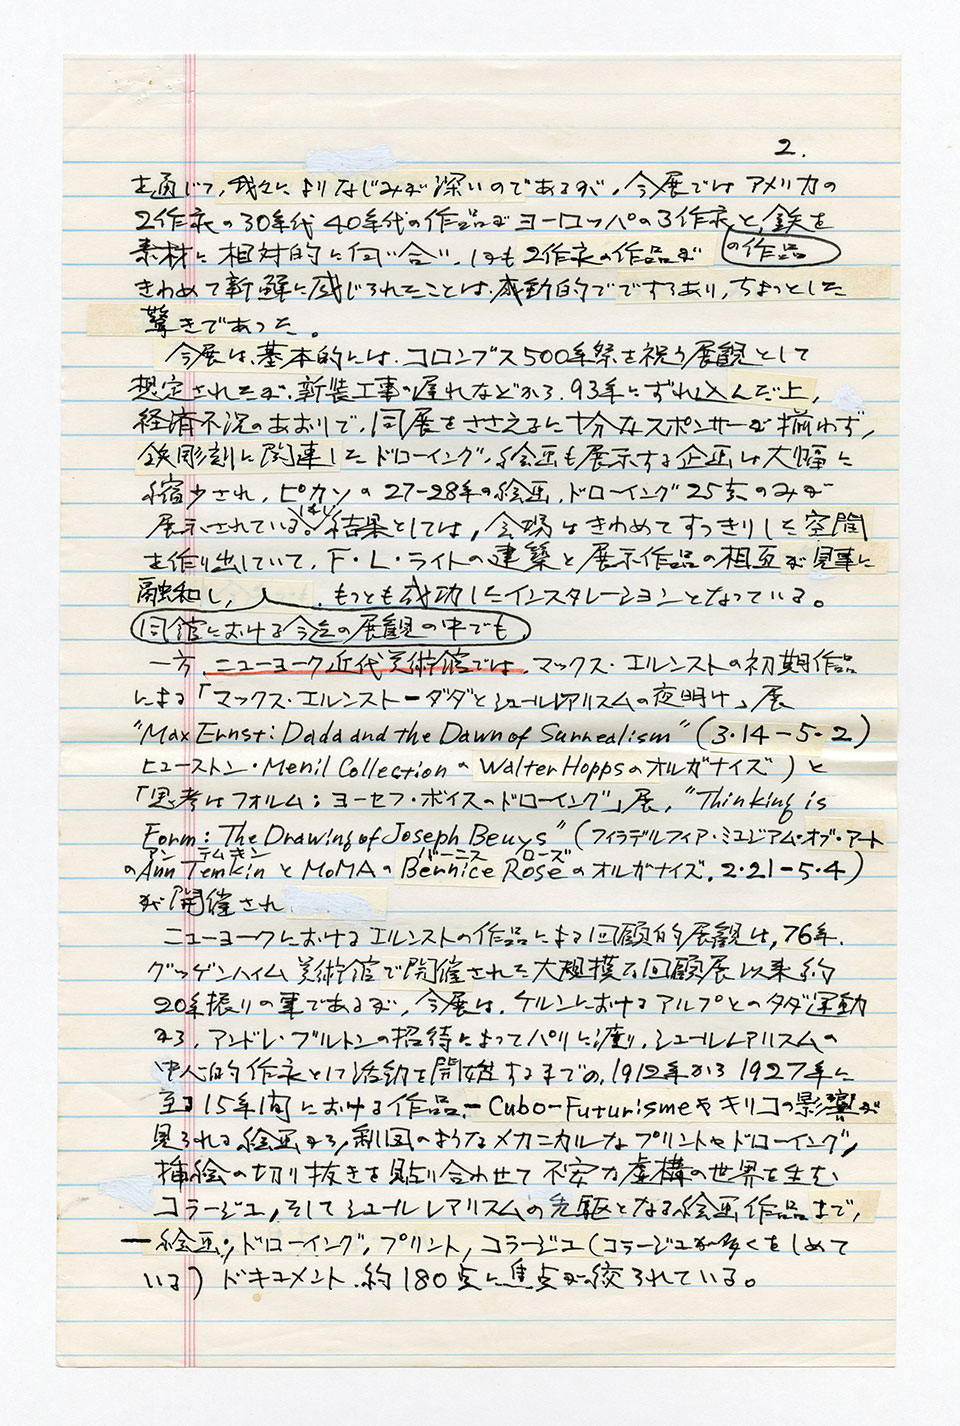 2.
を通じて、我々によりなじみが深いのであるが、今展ではアメリカの
2作家の30年代40年代の作品がヨーロッパの3作家と、鉄を
の作品
素材に相対的に向い合い、しかも2作家の作品が
きわめて新鮮に感じられたことは、感動的でですらあり、ちょっとした
驚きであった。
今展は、基本的には、コロンブス500年祭を祝う展観として
想定されたが、新装工事の遅れなどから、93年にずれ込んだ上、
経済不況のあおりで、同展をささえるに十分なスポンサーが揃わず、
鉄彫刻に関連したドローイング、絵画も展示する企画は大幅に
縮少され、ピカソの27-28年の絵画、ドローイング25点のみが
展示されている。しかし結果としては、会場はきわめてすっきりした空間
を作り出していて、F・L・ライトの建築と展示作品の相互が見事に
融和し、もっとも成功したインスタレーションとなっている。
同館における今迄の展観の中でも、
一方、ニューヨーク近代美術館では、マックス・エルンストの初期作品
による「マックス・エルンストーダダとシュールレアリスムの夜明け」展
"Max Ernst: Dada and the Dawn of Surrealism" (3・14-5・2)
ヒューストン・Menil CollectionのWalter Hoppsのオルガナイズ)と
「思考はフォルム；ヨーセフ・ボイスのドローイング」展、"Thinking is
Form: The Drawing of Joseph Beuys" (フィラデルフィア・ミュジアム・オブ・アート
アン テムキン バーニス ローズ
のAnn TemkinとMoMAのBernice Roseのオルガナイズ、2・21-5・4)
が開催され
ニューヨークにおけるエルンストの作品による回顧的展観は、76年、
グッゲンハイム美術館で開催された大規模な回顧展以来約
20年振りの事であるが、今展は、ケルンにおけるアルプとのダダ運動
から、アンドレ・ブルトンの招待によってパリに渡り、シュールレアリスムの
中心的作家として活動を開始するまでの、1912年から1927年に
至る15年間における作品、ーCubo-Futurismeやキリコの影響が
見られる絵画から、製図のようなメカニカルなプリントやドローイング、
挿絵の切り抜きを貼り合わせて不安な虚構の世界を生む
コラージュ、そしてシュールレアリスムの先駆となる絵画作品まで、
ー絵画、ドローイング、プリント、コラージュ(コラージュが多くをしめて
いる)ドキュメント、約180点に焦点が絞られている。